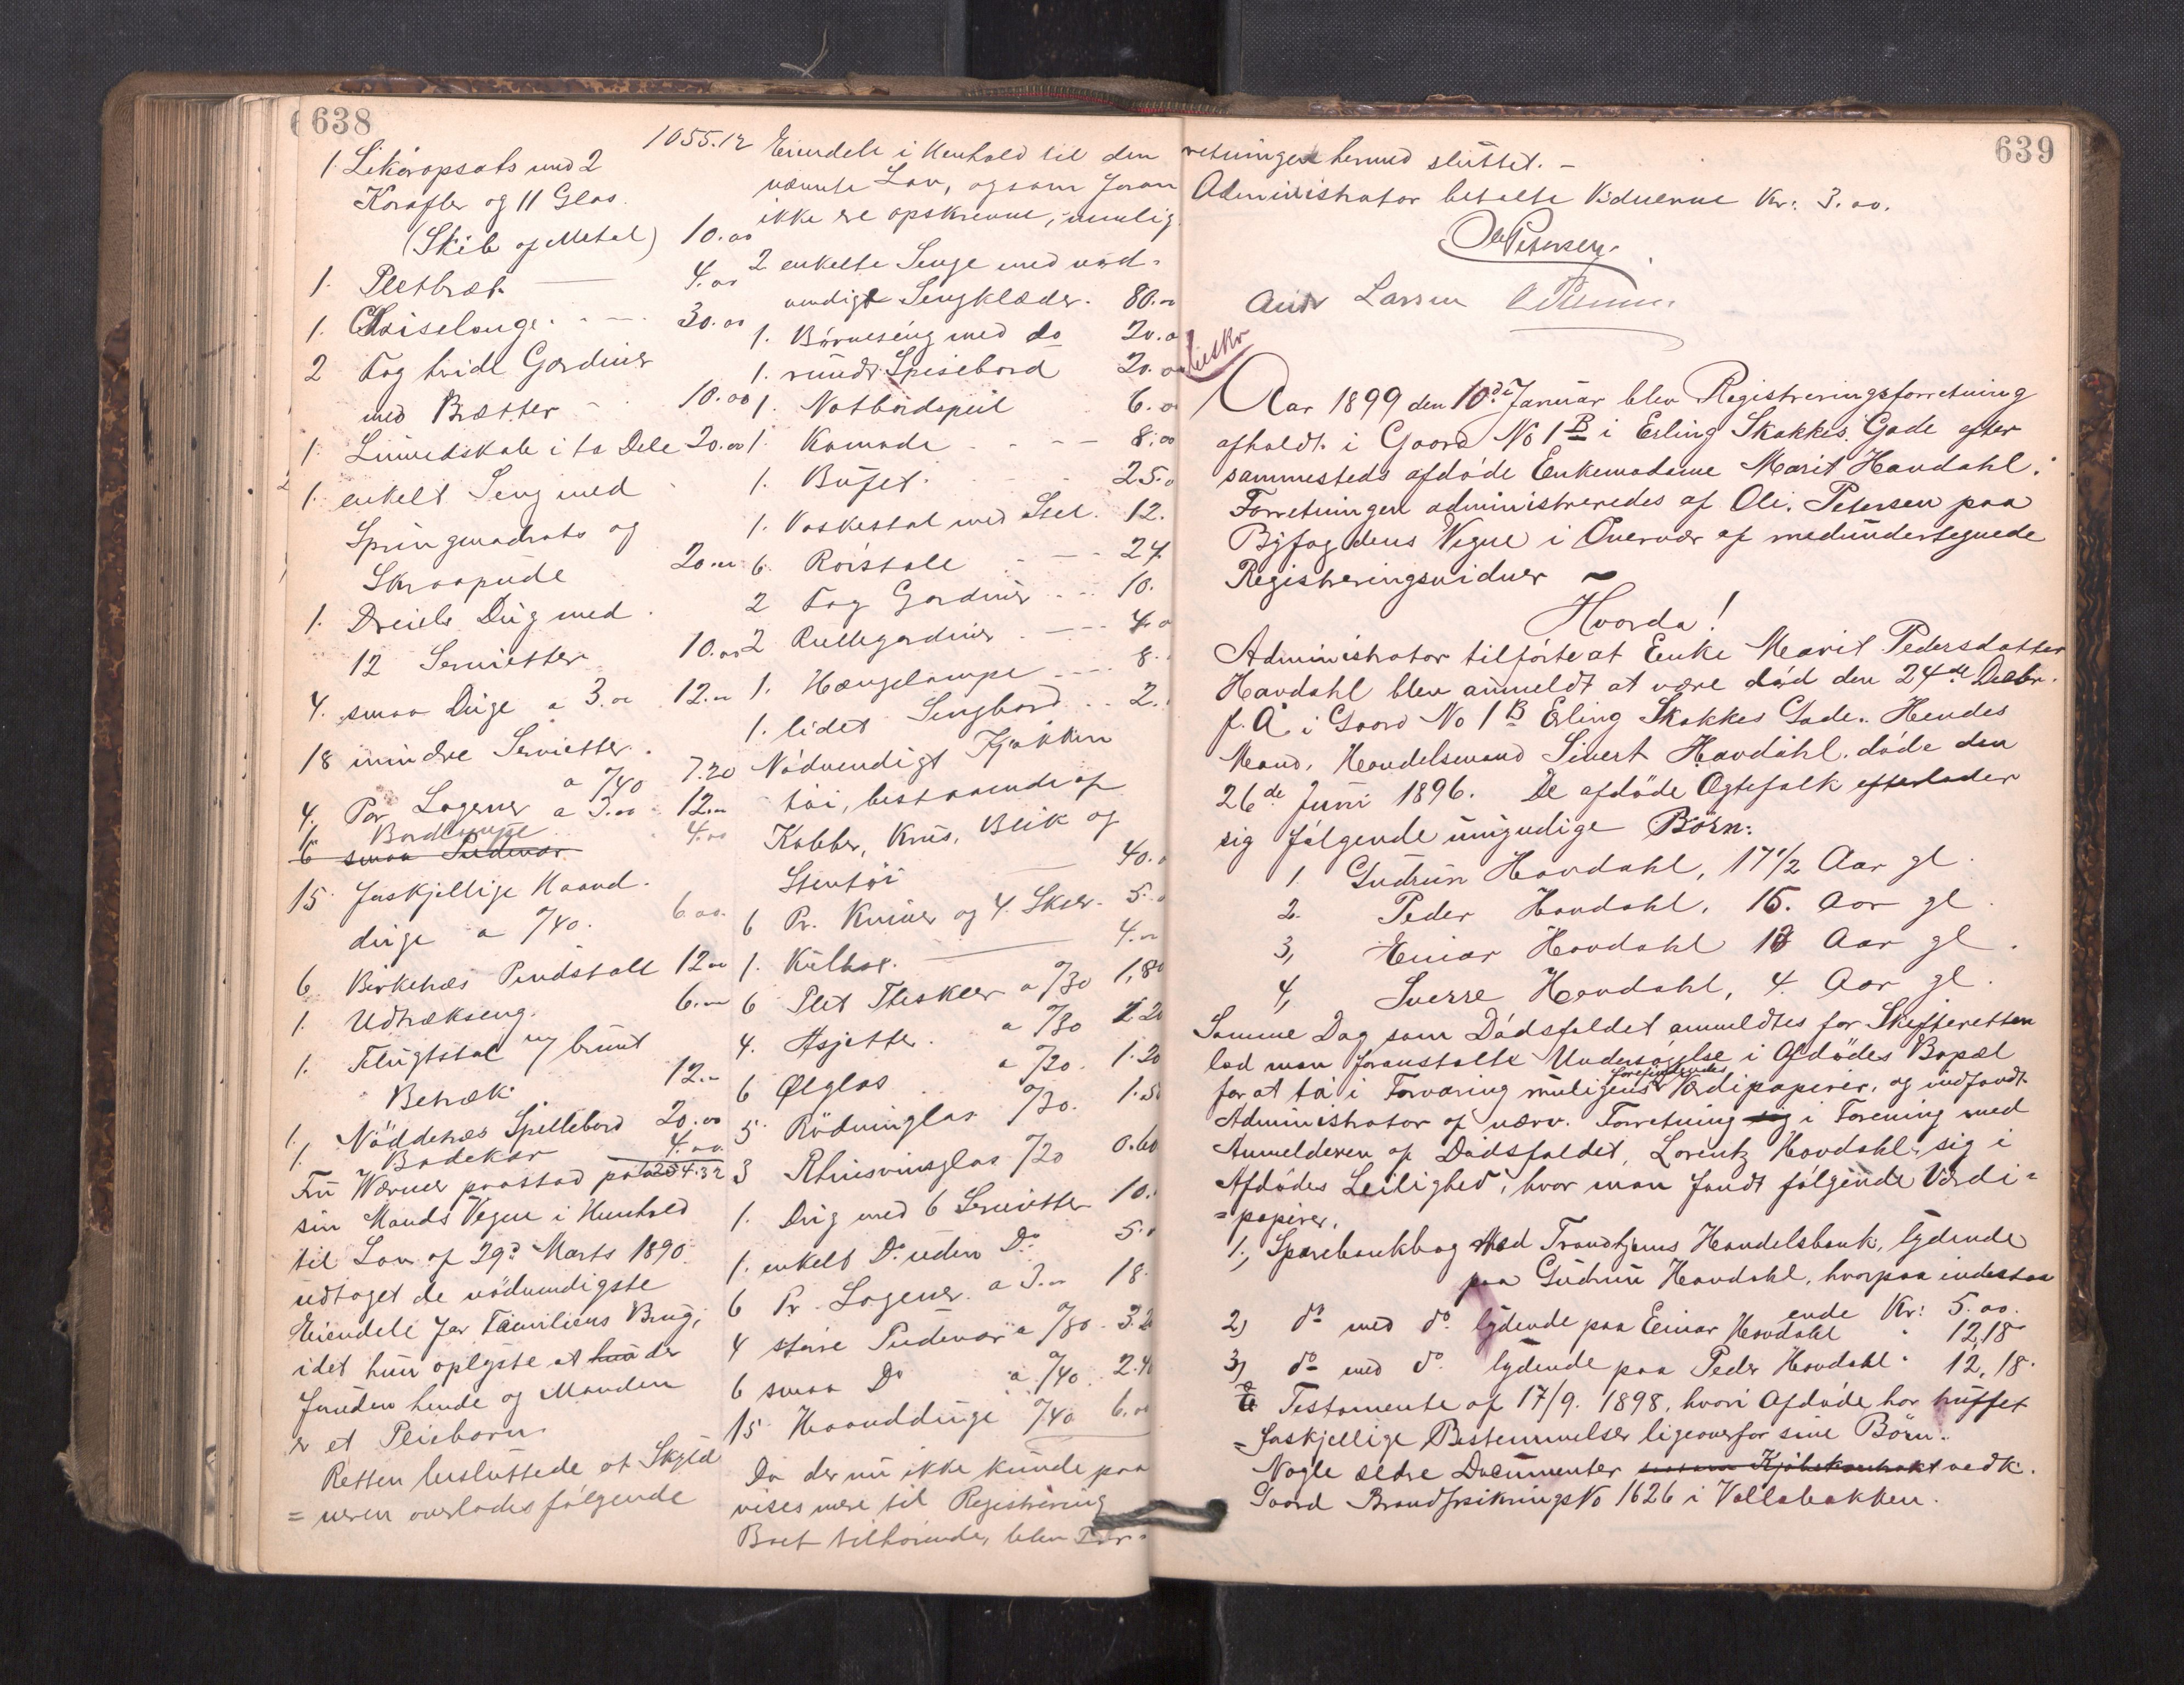 638
1055.12
1. Likøropsats med 2
Karafler og 11 Glas.
(Skib af Metal) 10.00
1. Pletbræt — 4.00
1. Chaiselonge. 30.00
2 Fag hvide Gardiner
med Brætter 10.00
1. Linnedskab i to Dele 20.00
1. enkelt Seng med
Springmadrats og
Skraapude 20.00
1. Dreiels Dug med
12 Servietter 10.00
4. smaa Duge a 3.00 12.00
18 mindre Servietter.
a 0/40 7.20
4. Par Lagener a 3.00 12.00
1. Bordlampe 4.00
6 smaa Pudevar
15. forskjellige Haand-
duge a 0/40. 6.00.
6 Birketræs Pindstole 12.00
1. Udtrækseng. 6.00
1. Flugtstol m/ brunt
Betræk. 12.00
1. Nøddetræs Spillebord 20.00
1. Badekar 4.00.
1254.32
Fru Werner paastod paa
sin Mands Vegne i Henhold
til Lov af 29de Marts 1890
udtaget de nødvendigste
Eiendele for Familiens Brug,
idet hun oplyste at hun der
foruden hende og Manden
er et Pleiebarn.
Retten besluttede at Skyld
=neren overlades følgende
Eiendele i Henhold til den
nævnte Lov, og som foran
ikke ere opskrevne, nemlig.
2 enkelte Senge med nød-
vendige Sengklæder. 80.00
1. Børneseng med do 20.0
1. rundt Spisebord 20.0
1. Natbordspeil 6.0
1. Komode 8.00
1. Bufet. 25.0
1. Vaskestol med Stel. 12.
6 Rørstole 24.
2 Fag Gardiner 10.
2 Rullegardiner 4.0
1. Hængelampe 8.
1. lidet Sengbord 2.
Nødvendigt Kjøkken
tøi, bestaaende af
Kobber, Krus, Blik og
Stentøi 40.
6 Pr. Knive og 4 Skeer. 5.
1. Kulbox. 4.00
6 Plet Theskeer a 0/30 1,80
4. Asjetter. a 0/80 20
6 Ølglas a 0/20. 1.20
5 Rødvinglas 0/30. 1.50
3 Rhinsvinsglas 0/20 0.60
1. Dug med 6 Servietter 10.
1. enkelt Do uden Do 5.
6 Pr. Lagener a 3.00 18.
4 større Pudevar a 0/80 3.20
6 smaa Do a 0/40 2.40
15 Haandduge 0/40 6.00
Da der nu ikke kunde paa
vises mere til Registrering
Boet tilhørende, blev For-
639
retningen hermed sluttet. —
Administrator betalte Vidnerne Kr: 3.00.
Ole Petersen.
Andr Larsen
Aar 1899 den 10de Januar blev Registreringsforretning
afholdt i Gaard No 1 B i Erling Skakkes Gade efter
sammesteds afdøde Enkemadame Marit Havdahl.
Forretningen administreredes af Ole Petersen paa
Byfogdens Vegne i Overvær af medundertegnede
Registreringsvidner ~
Hvorda!
Administrator tilførte at Enke Marit Pedersdatter
Havdahl blev anmeldt at være død den 24de Decbr.
f. A. i Gaard No 1 B Erling Skakkes Gade. Hendes
Mand, Handelsmand Sivert Havdahl. døde den
26de Juni 1896. De afdøde Ægtefolk efterlader
sig følgende umyndige Børn:
1. Gudrun Havdahl, 17 1/2 Aar gl.
2. Peder Havdahl, 15. Aar gl.
3, Einar Havdahl Aar gl.
4, Sverre Havdahl, 4. Aar gl.
Samme Dag som Dødsfaldet anmeldtes for Skifteretten
lod man foranstalte Undersøgelse i Afdødes Bopæl
for at ta i Forvaring muligens forefindendes Værdipapirer, og indfandt
Administrator af nærv. Forretning sig i Forening med
Anmelderen af Dødsfaldet, Lorentz Havdahl, sig i
Afdødes Leilighed, hvor man fandt følgende Værdi-
=papirer.
1., Sparebankbog med Trondhjems Handelsbank, lydende
paa Gudrun Havdahl, hvorpaa indestaa
ende Kr: 5.00.
2) do med do. lydende paa Einar Havdahl " 12,18
3) do med do. lydende paa Peder Havdahl " 12,18.
Testamente af 17/9. 1898, hvori Afdøde har truffet
=forskjellige Bestemmelser ligeoverfor sine Børn.
Nogle ældre Documenter saasom Kjøbekontrakt vedk.
Gaard Brandforsikrings No 1626 i Vollabakken.